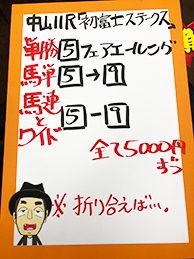 中山11R「初富士ステークス」
単勝 5 フェアエールング
馬単 5→9
馬連とワイド 5-9
全て5000円ずつ
※折り合えば…。